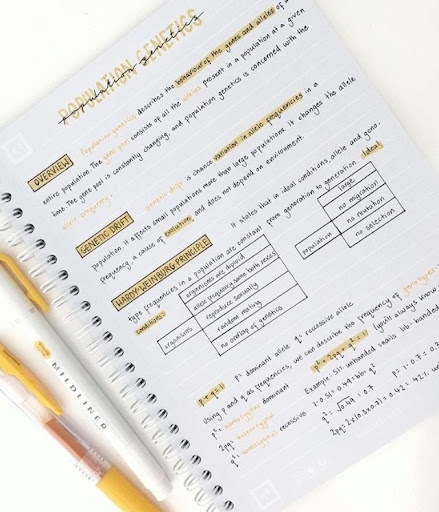 POPULATION GENETICS
population genetics
Population genetics describes the behaviour of the genes and alleles of a
entire population. The gene pool consists of all the alleles present in a population at a given
time. The gene pool is constantly changing, and population genetics is concerned with the
allele frequency.
OVERVIEW
Genetic drift is chance variation in allele frequencies in a
population. It affects small populations more than large populations. It changes the allele
frequency, a cause of evolution and does not depend on environment.
GENETIC DRIFT
It states that in ideal conditions, allele and geno-
type frequencies in a population are constant from generation to generation. Ideal
conditions:
HARDY-WEINBURG PRINCIPLE
organisms
organisms are diploid
allele frequency same both sexes
reproduce sexually
random mating
no overlap of genetics
population
large
no migration
no mutation
no selection
p + q = 1
p = dominant allele q = recessive allele
Using p and q as frequencies, we can describe the frequency of genotypes
p² = homozygous dominant
2pq = heterozygous
q² = homozygous recessive
p² + 2pq + q² = 1
(you'll always know
Example: 511 unhanded snails bb, banded
1-0.51 = 0.49 = bb = q²
q = √0.49 = 0.7
p = 1-0.7 =
2pq = 2 x 0.3 x 0.7 = 0.42 = 42%
MILDLINER